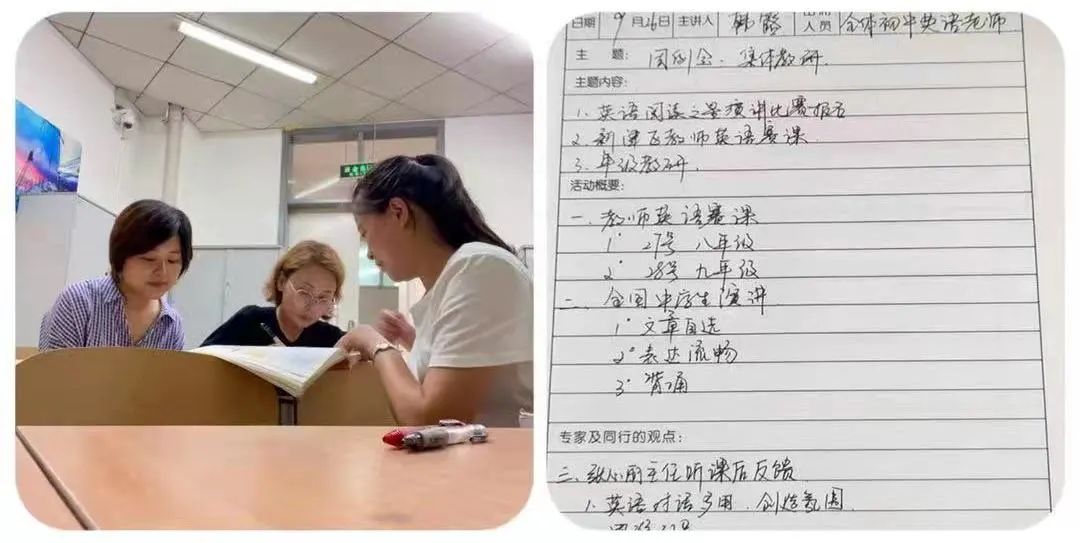 日期 9月26日 主讲人 韩璐 人员 全体初中英语老师
主 题: 周例会、集体教研.
主题内容:
1. 英语阅读之星演讲比赛报告
2. 新课区教师英语赛课.
3. 年级教研.
活动概要:
一. 教师英语赛课
1° 27号 八年级
2° 28号 九年级
二. 全国中学生演讲
1° 文章自选
2° 表达流畅
3° 背诵
专家及同行的观点:
三. 主任听课后反馈
1. 英语对话多用, 创造氛围.